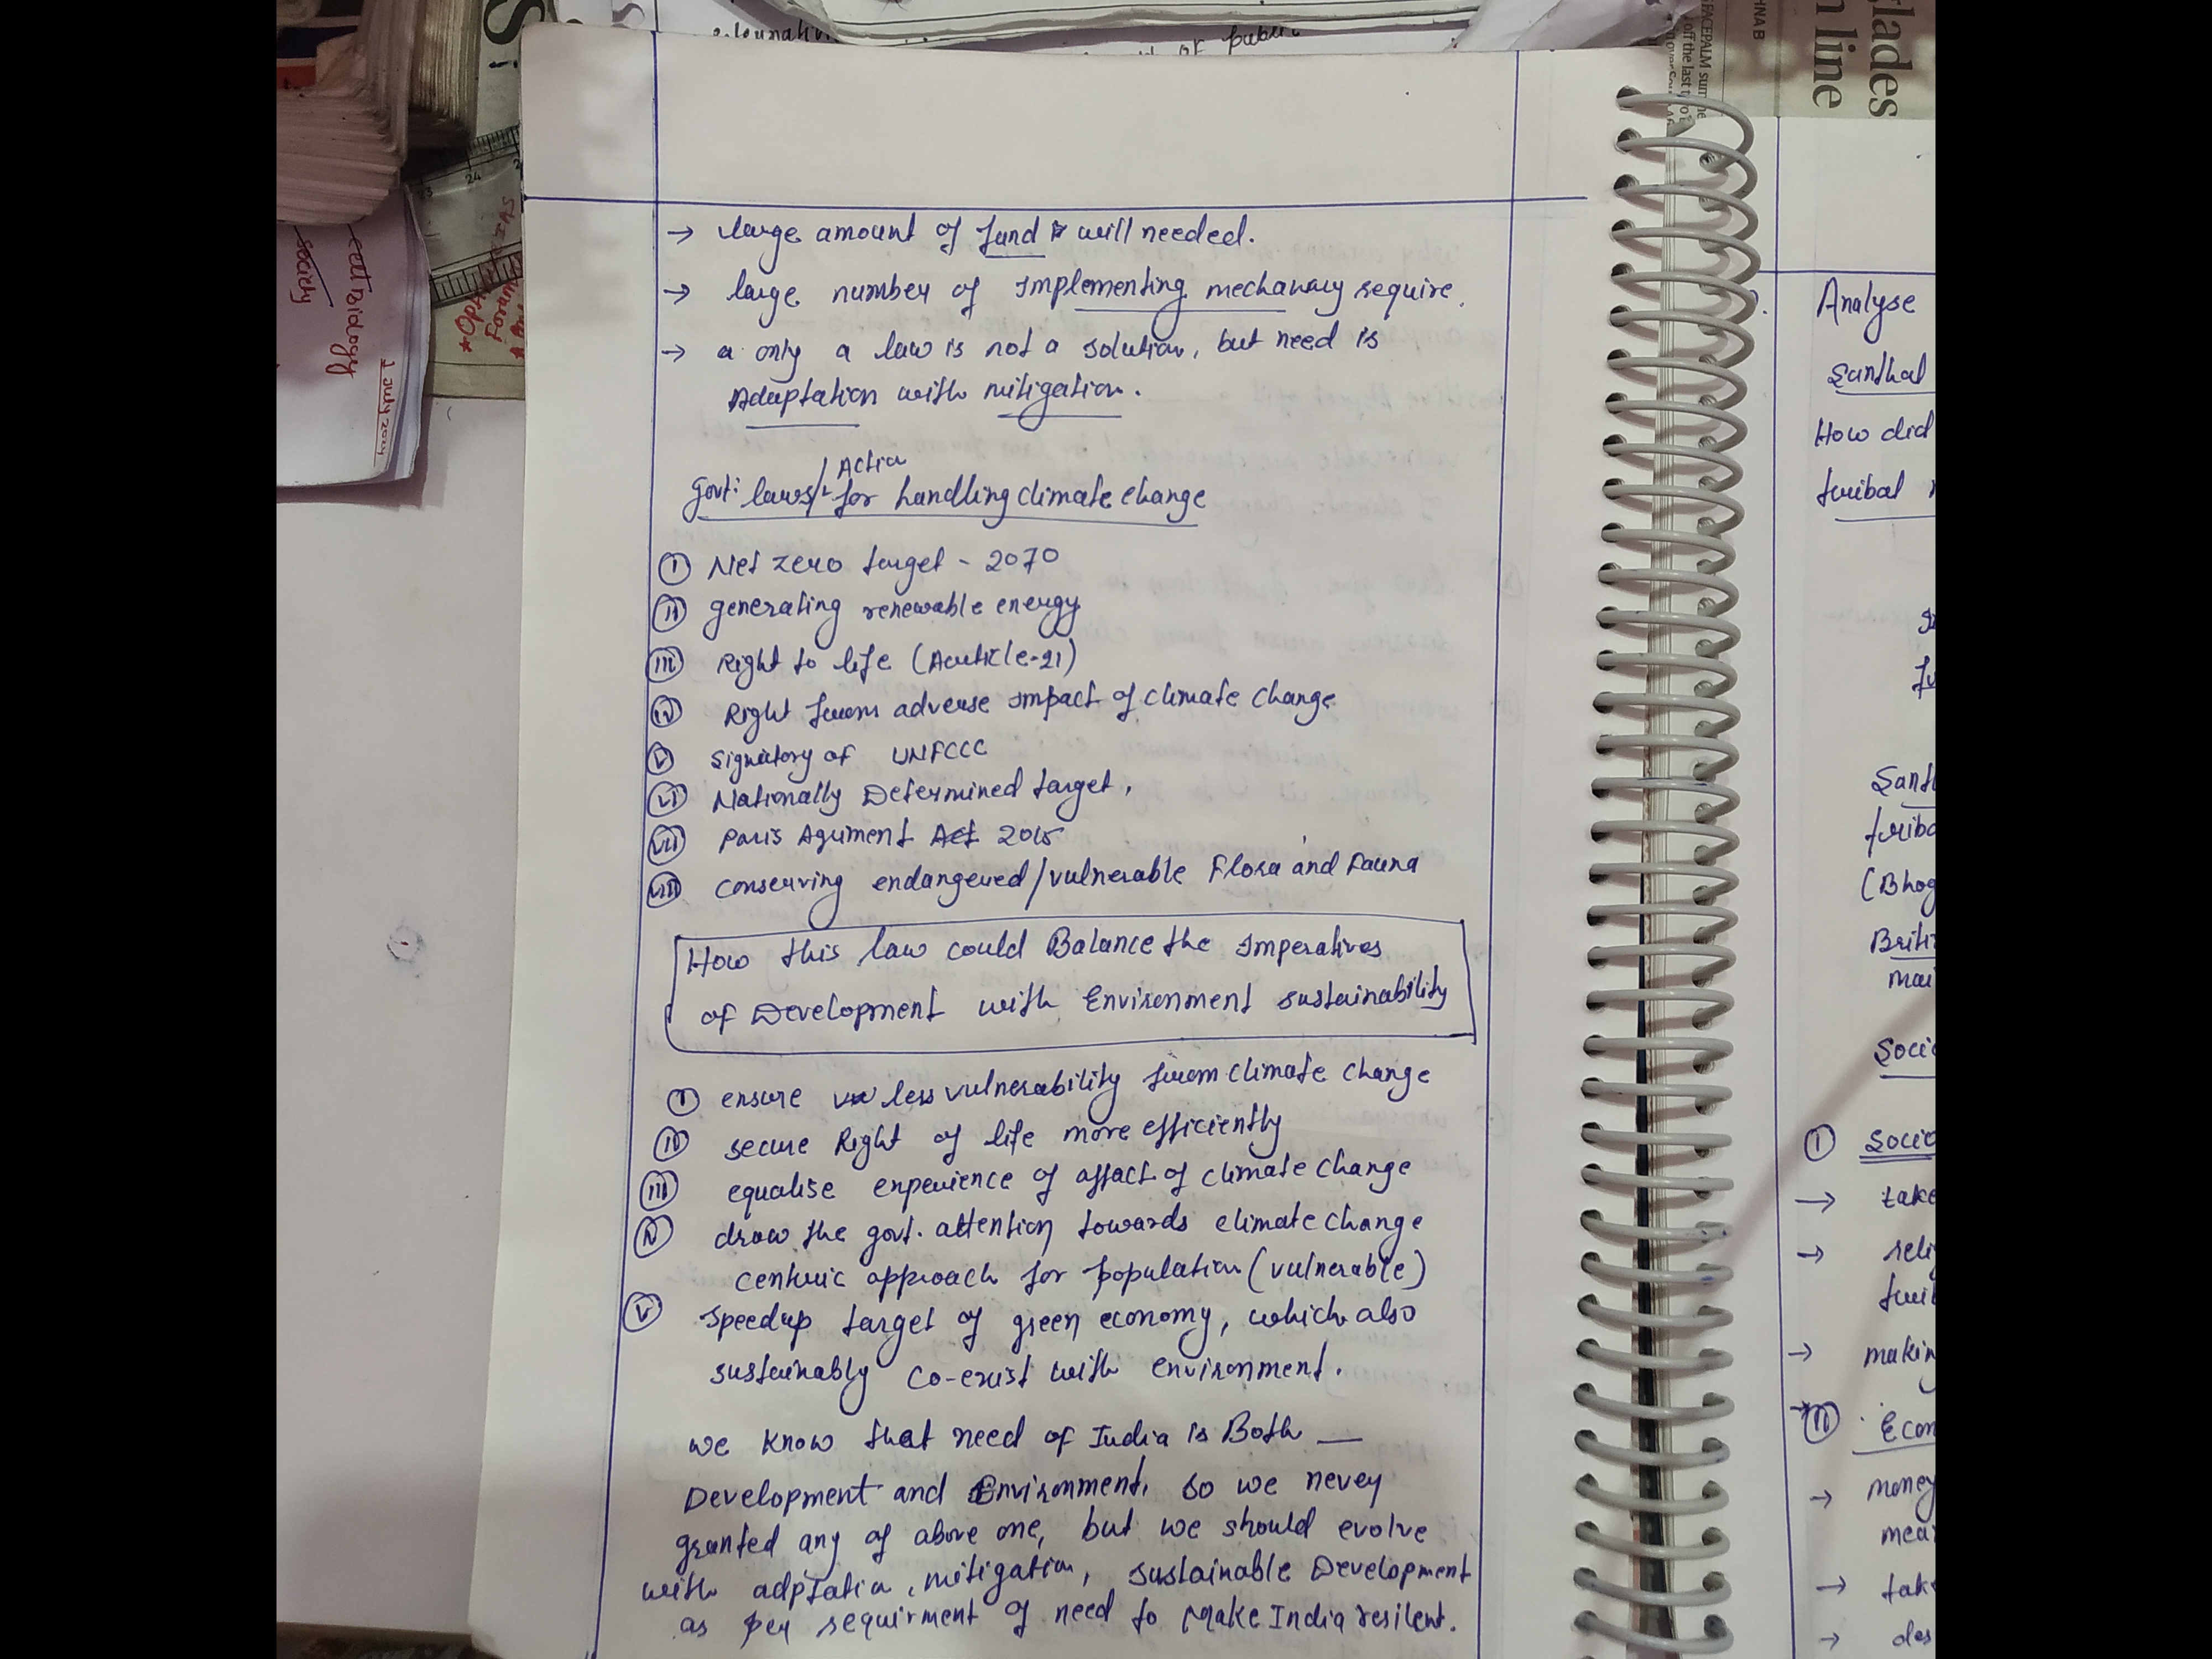 → large amount of fund will needed.
→ large number of Implementing mechanary require.
→ a only a law is not a solution, but need is
Adaptation with mitigation.
Govt: laws/Action for handling climate change
(i) Net zero target - 2070
(ii) generating renewable energy
(iii) Right to life (Aurticle-21)
(iv) Right from adverse impact of climate change
(v) Signatory of UNFCCC
(vi) Nationally Determined target,
(vii) Paris Agriment Act 2015
(viii) conserving endangered/vulnerable Flora and Fauna
How this law could Balance the Imperatives
of Development with Environment sustainability
(i) ensure less vulnerability from climate change
(ii) secure Right of life more efficiently
(iii) equalise enperience of affact of climate change
(iv) draw the govt. attention towards climate change
centric approach for population (vulnerable)
(v) speedup target of green economy, which also
sustainably co-exist with environment.
we know that need of India is Both —
Development and Environment, so we never
granted any of above one, but we should evolve
with adptation, mitigation, sustainable Development
as per requirment of need to Make India resilent.
Analyse
Santhal
How did
tribal
Sant
triba
(Bhog
Briti
mai
Socio
(i) Socio
→ take
→ reli
→ makin
(ii) Econ
→ money
mea
→ tak
→ des
glades
n line
FACEPALM
off the last
HNA B
of public
society
1 July 2024
23
24